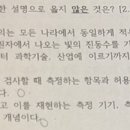 한 설명으로 옳지 않은 것은? [2.
의는 모든 나라에서 동일하게 적
원자에서 나오는 빛의 진동수를 기
터 과학기술, 산업에 이르기까지
검사할 때 측정하는 항목과 허용
고 이를 재현하는 측정 기기, 측
개념이다.